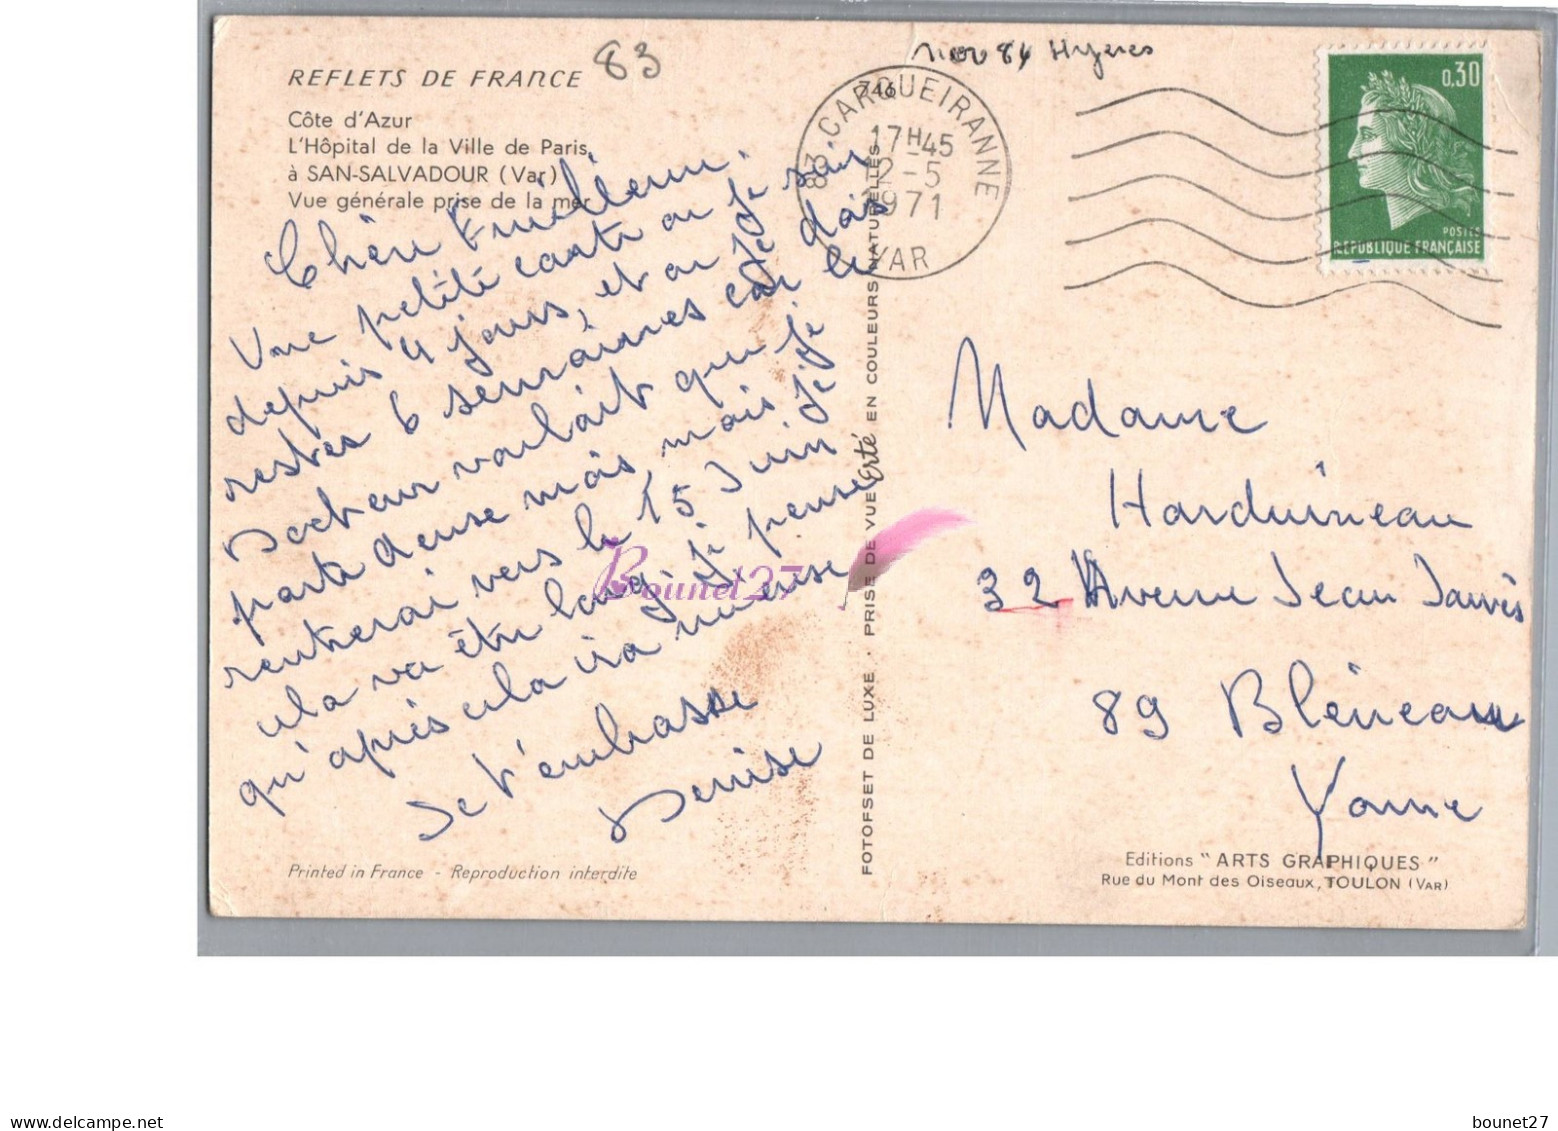 REFLETS DE FRANCE
83
Côte d'Azur
L'Hôpital de la Ville de Paris
à SAN-SALVADOUR (Var)
Vue générale prise de la mer
Nov 84 Hyeres
746
83 CARQUEIRANNE
17H45
12-5
1971
VAR
0,30
POSTES
REPUBLIQUE FRANÇAISE
Chère
Une petite carte ou je suis
depuis 4 jours, et ou je dois
restes 6 semaines car le
Docteur voulait que je
parte deuse mois mais je
rentrerai vers le 15 Juin
cela va être long, je pense
qu'après cela ira mieuse
Je t'embrasse
Denise
Madame
Harduineau
32 Avenue Jean Jaurès
89 Bléneau
Yonne
FOTOFSET DE LUXE . PRISE DE VUE Erté EN COULEURS NATURELLES
Bounet27
Printed in France - Reproduction interdite
Editions "ARTS GRAPHIQUES"
Rue du Mont des Oiseaux, TOULON (VAR)
www.delcampe.net
bounet27